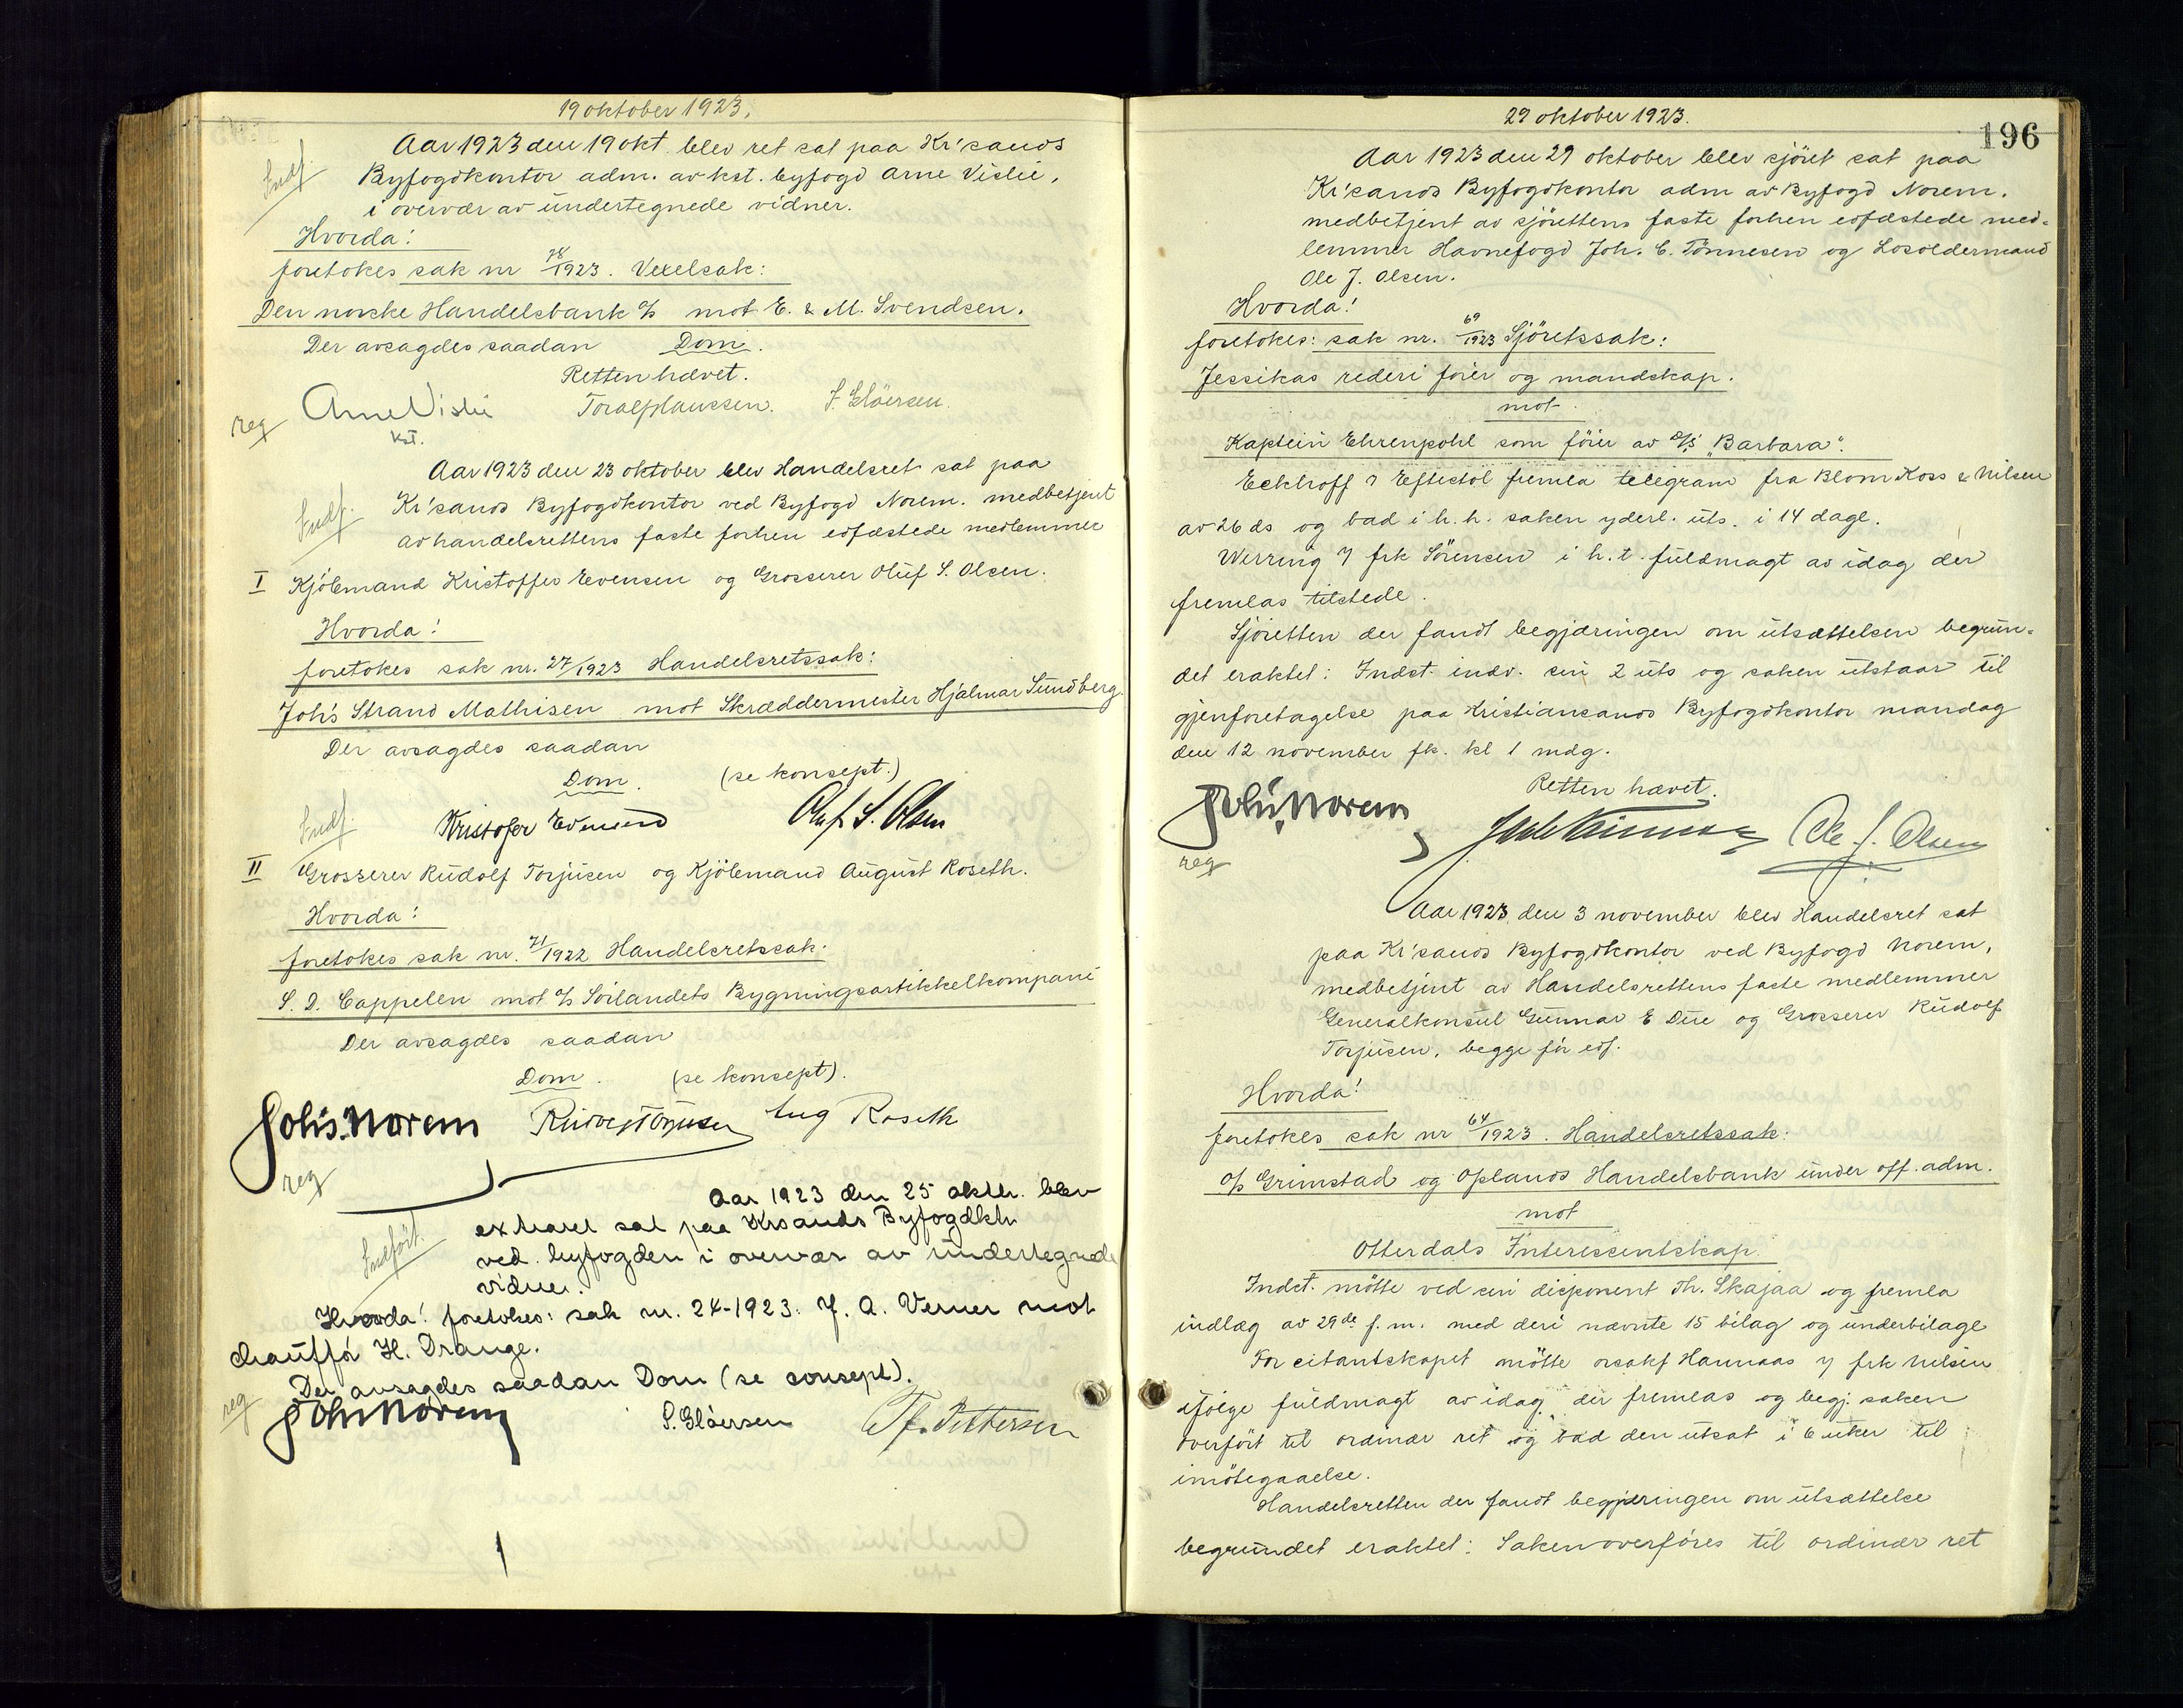 19 oktober 1923.
Aar 1923 den 19 okt. blev ret sat paa Kr'sands
Indf.
Byfogdkontor adm. av kst. byfogd Arne Vislie,
i overvær av undertegnede vidner.
Hvorda!
foretokes sak nr 78/1923. Vexelsak:
Den norske Handelsbank A/S mot E. & M. Svendsen.
Der avsagdes saadan Dom.
Retten hævet.
reg Arne Vislie S. Glöersen.
kst.
Aar 1923 den 23 oktober blev Handelsret sat paa
Indf. Kr'sands Byfogdkontor ved Byfogd Norem. medbetjent
av handelsrettens faste forhen edfæstede medlemmer
I Kjöbmand Kristoffer Evensen og Grosserer Oluf S. Olsen.
Hvorda!
foretokes sak nr. 27/1923 Handelsretssak:
Johs Strand Mathisen mot Skræddermester Hjalmar Sundberg.
Der avsagdes saadan
Dom. (se konsept.)
Indf. Kristofer Evensen Oluf S. Olsen
II Grosserer Rudolf Torjusen og Kjöbmand August Roseth.
Hvorda!
foretokes sak nr. 71/1922 Handelsretssak.
S. D. Cappelen mot A/S Sörlandets Bygningsartikkelkompani
Der avsagdes saadan
Dom. (se konsept).
Johs. Norem Rudolf Torjusen Aug Roseth
reg
Aar 1923 den 25 oktbr. blev
extraret sat paa Krsands Byfogdktr
Indført. ved byfogden i overvær av undertegnede
vidner.
Hvorda! foretokes: sak nr. 24-1923: J. A. Verner mot
chauffør H. Drange.
Der avsagdes saadan Dom (se consept).
reg Joh Norem S. Glöersen Th. Pettersen
29 oktober 1923.
196
Aar 1923 den 29 oktober blev sjöret sat paa
Kr'sands Byfogdkontor adm av Byfogd Norem.
medbetjent av sjörettens faste forhen edfæstede med-
lemmer Havnefogd Joh. C. Tönnesen og Losoldermand
Ole J. Olsen.
Hvorda!
foretokes: sak nr. 69/1923 Sjöretssak:
Jessikas rederi förer og mandskap.
mot
Kaptein Ehrenpohl som förer av D/S "Barbara".
Eckhoff v Eftestöl fremla telegram fra Blom Koss & Nilsen
av 26 ds og bad i h. h. saken yderl. uts. i 14 dage.
Werring v frk Sörensen i h. t. fuldmagt av idag der
fremlas tilstede.
Sjöretten der fandt begjæringen om utsættelsen begrun-
det eraktet: Indst. indv. sin 2 uts og saken utstaar til
gjenforetagelse paa Kristiansands Byfogdkontor mandag
den 12 november fk. kl 1 mdg.
Retten hævet.
Johs. Norem Ole J. Olsen
reg
Aar 1923 den 3 november blev Handelsret sat
paa Kr'sands Byfogdkontor ved Byfogd Norem,
medbetjent av Handelsrettens faste medlemmer
Generalkonsul Gunnar E Due og Grosserer Rudolf
Torjusen, begge før edf.
Hvorda!
foretokes sak nr 64/1923. Handelsretssak:
A/S Grimstad og Oplands Handelsbank under off. adm.
mot
Otterdals Interessentskap.
Indst. mötte ved sin disponent Th. Skajaa og fremla
indlæg av 29de f. m. med deri nævnte 15 bilag og underbilage
For citantskapet mötte orsakf Hannaas v frk Nilsen
ifölge fuldmagt av idag der fremlas og begj. saken
overfört til ordinær ret og bad den utsat i 6 uker til
imötegaaelse.
Handelsretten der fandt begjæringen om utsættelse
begrundet eraktet: Saken overföres til ordinær ret